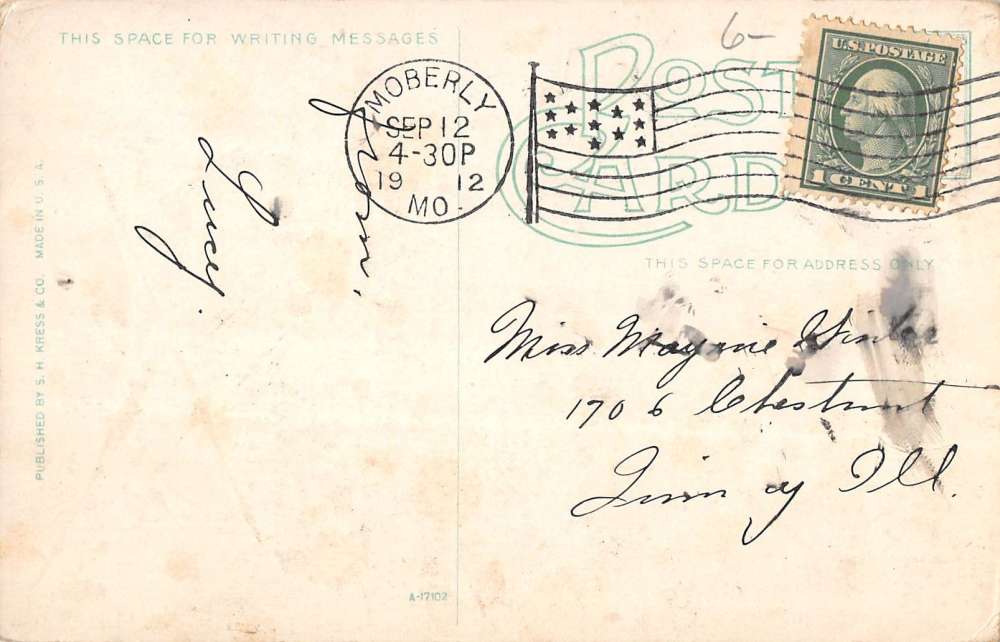 THIS SPACE FOR WRITING MESSAGES
6-
POST
CARD
U.S. POSTAGE
1 CENT 1
MOBERLY
SEP 12
4-30P
19 12
MO.
From,
Lucy.
PUBLISHED BY S. H. KRESS & CO. MADE IN U. S. A.
THIS SPACE FOR ADDRESS ONLY
Miss Mayme
1706 Chestnut
Quincy Ill.
A-17102